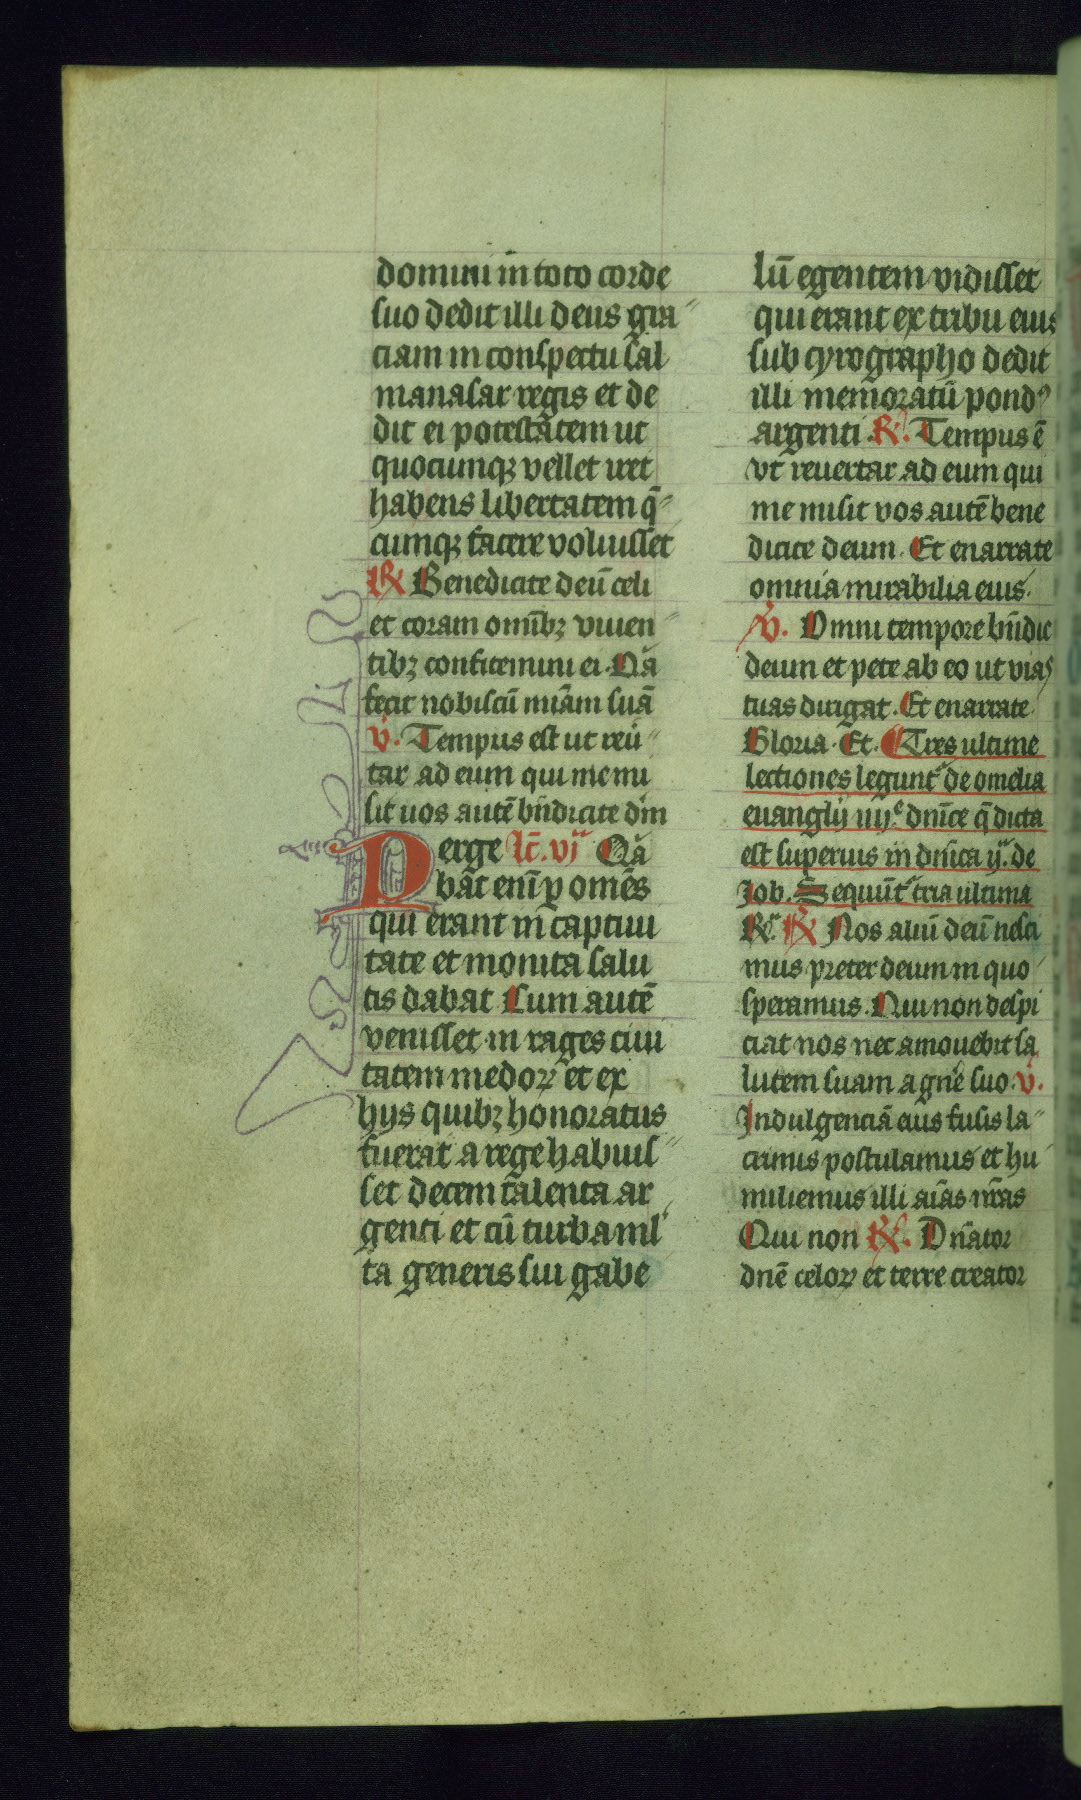 domini in toto corde
suo dedit illi deus gra
ciam in conspectu sal
manasar regis et de
dit ei potestatem ut
quocumqꝫ vellet iret
habens libertatem q̄
cumqꝫ facere voluisset
℟ Benedicite deū celi
et coram om̄ibꝫ viuen
tibꝫ confitemini ei. Qꝛā
fecit nobiscū mīam suā
℣. Tempus est ut reū
tar ad eum qui me mi
sit uos autē bn̄dicite dn̄m
Perge Lc̄. vjᵃ Qꝛā
bat enī ꝑ omēs
qui erant in captiui
tate et monita salu
tis dabat Cum autē
venisset in rages ciui
tatem medoꝝ et ex
hijs quibꝫ honoratus
fuerat a rege habuis
set decem talenta ar
genti et cū turba mĺ
ta generis sui gabe
lū egentem vidisset
qui erant ex tribu eius
sub cyrographo dedit
illi memoratū pondꝰ
argenti ℟. Tempus ē
vt reuertar ad eum qui
me misit vos autē bene
dicite deum. Et enarrate
omnia mirabilia eius.
℣. Omni tempore bn̄dic
deum et pete ab eo ut vias
tuas dirigat. Et enarrate.
Gloria. Et. ¶ Tres ultime
lectiones legunt᷑ de omelia
euanglij iiijᵉ dnīce q̄ dicta
est superius in dn̄ica ijᵃ de
Job. Sequūt᷑ tria ultima
Rᵃ. ℟ Nos aliū deū nesci
mus preter deum in quo
speramus. Qui non despi
ciat nos nec amouebit sa
lutem suam a gn̄e suo. ℣.
Indulgenciā eius fusis la
crimis postulamus et hu
miliemus illi aīas nr̄as
Qui non ℟. Dn̄ator
dn̄e celoꝝ et terre creator